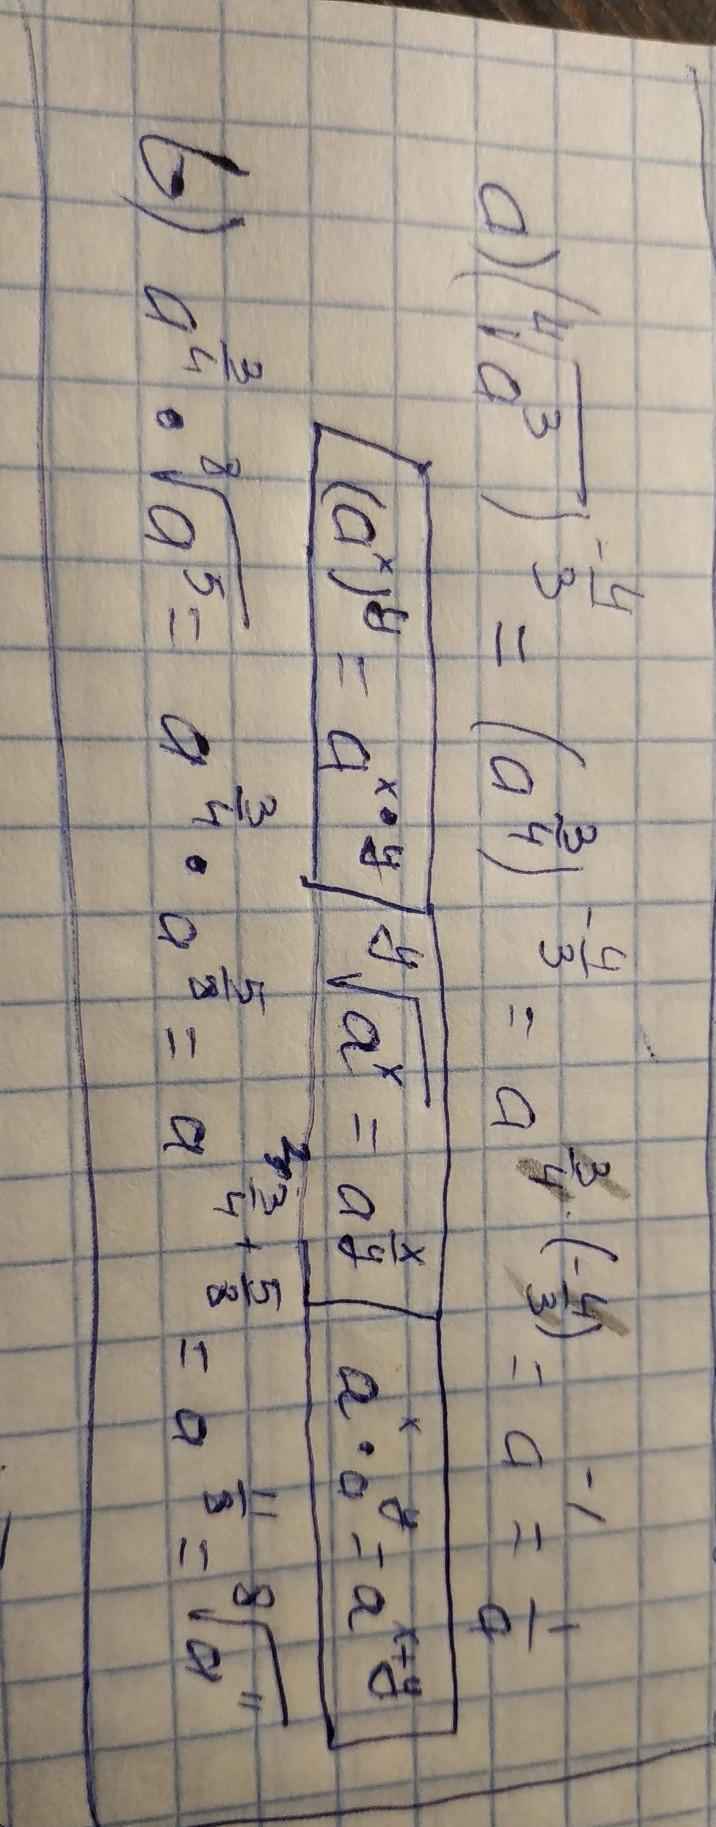 a) (⁴√a³)^(-4/3) = (a^(3/4))^(-4/3) = a^(3/4·(-4/3)) = a^(-1) = 1/a
(a^x)^y = a^(x·y) ʸ√a^x = a^(x/y) a^x · a^y = a^(x+y)
b) a^(3/4) · ⁸√a⁵ = a^(3/4) · a^(5/8) = a^(3/4+5/8) = a^(11/8) = ⁸√a¹¹